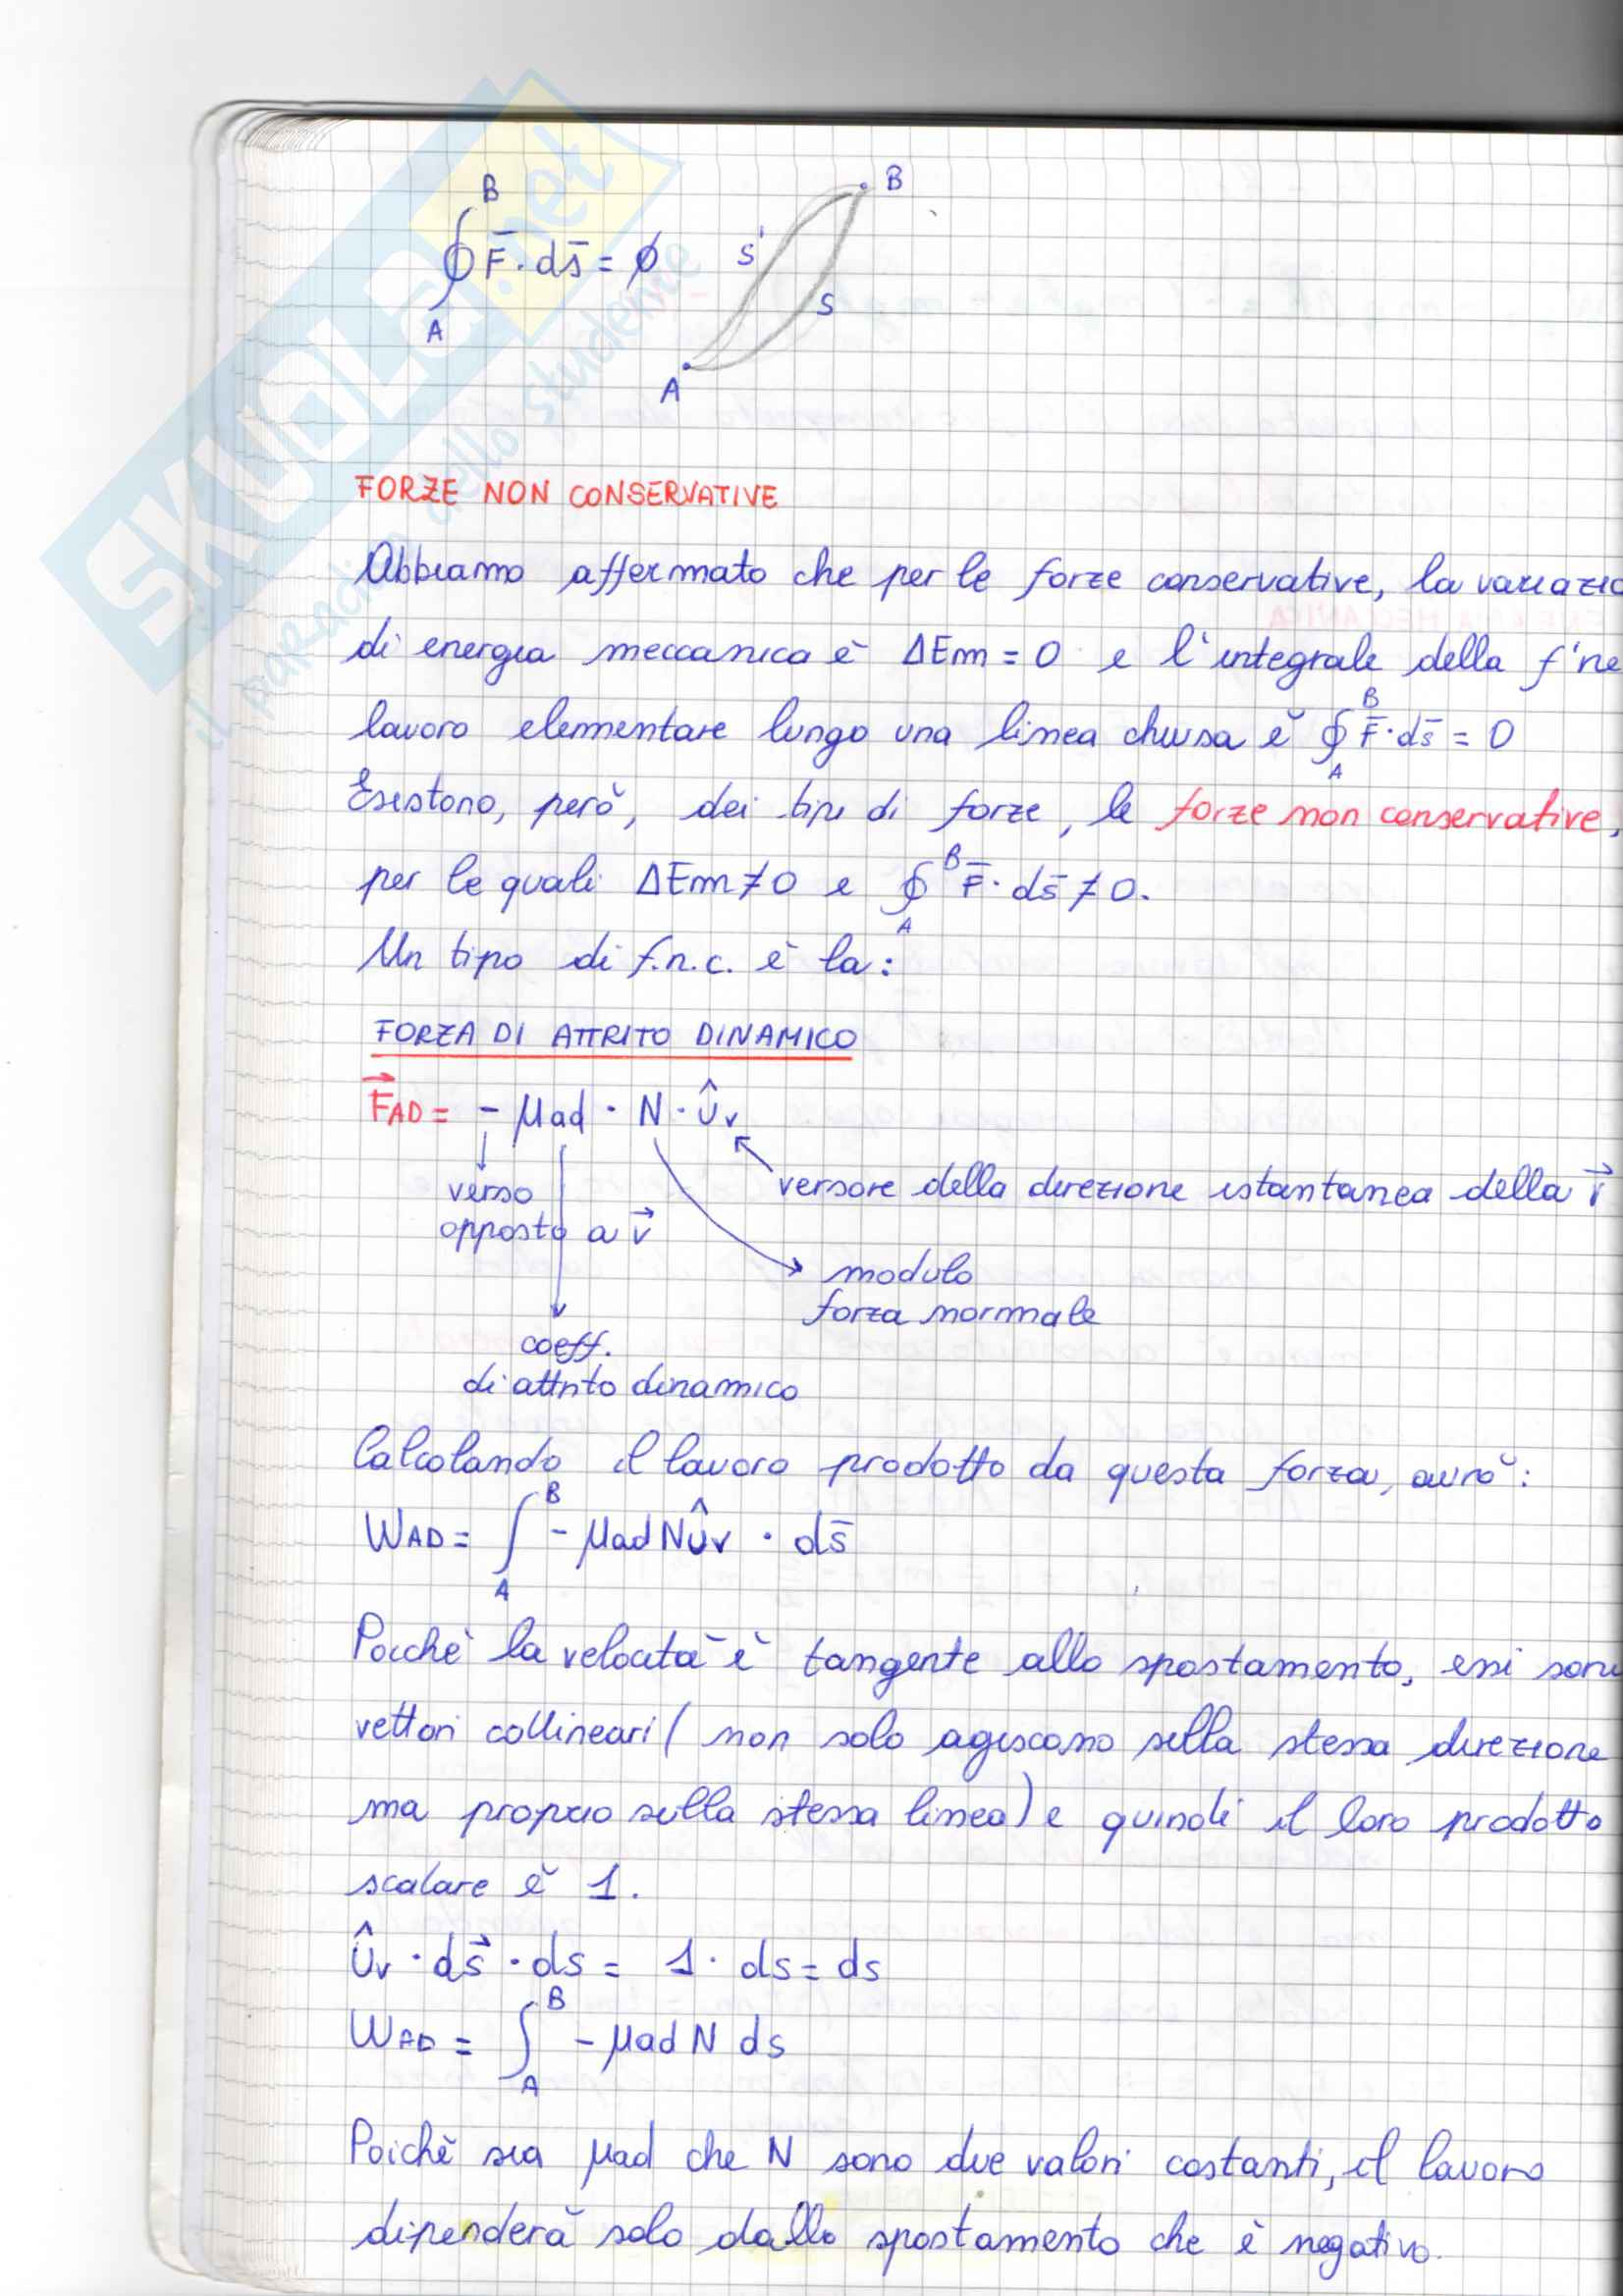 SKUOLA.net
il paradiso dello studente
B
∮ F̄ · ds̄ = ø
A
B
S'
S
A
FORZE NON CONSERVATIVE
Abbiamo affermato che per le forze conservative, la variazio
di energia meccanica è ΔEm = 0 e l'integrale della f'ne
lavoro elementare lungo una linea chiusa è ∮ₐᴮ F̄ · ds̄ = 0
Esistono, però, dei tipi di forze, le forze non conservative,
per le quali ΔEm ≠ 0 e ∮ₐᴮ F̄ · ds̄ ≠ 0.
Un tipo di f.n.c. è la:
FORZA DI ATTRITO DINAMICO
F⃗AD = - μad · N · ûv
verso
opposto a v⃗
versore della direzione istantanea della
modulo
forza normale
coeff.
di attrito dinamico
Calcolando il lavoro prodotto da questa forza, avrò:
WAD = ∫ₐᴮ - μad N ûv · ds̄
Poiché la velocità è tangente allo spostamento, essi sono
vettori collineari (non solo agiscono sulla stessa direzione
ma proprio sulla stessa linea) e quindi il loro prodotto
scalare è 1.
ûv · ds⃗ · ds = 1 · ds = ds
WAD = ∫ₐᴮ - μad N ds
Poiché sia μad che N sono due valori costanti, il lavoro
dipenderà solo dallo spostamento che è negativo.